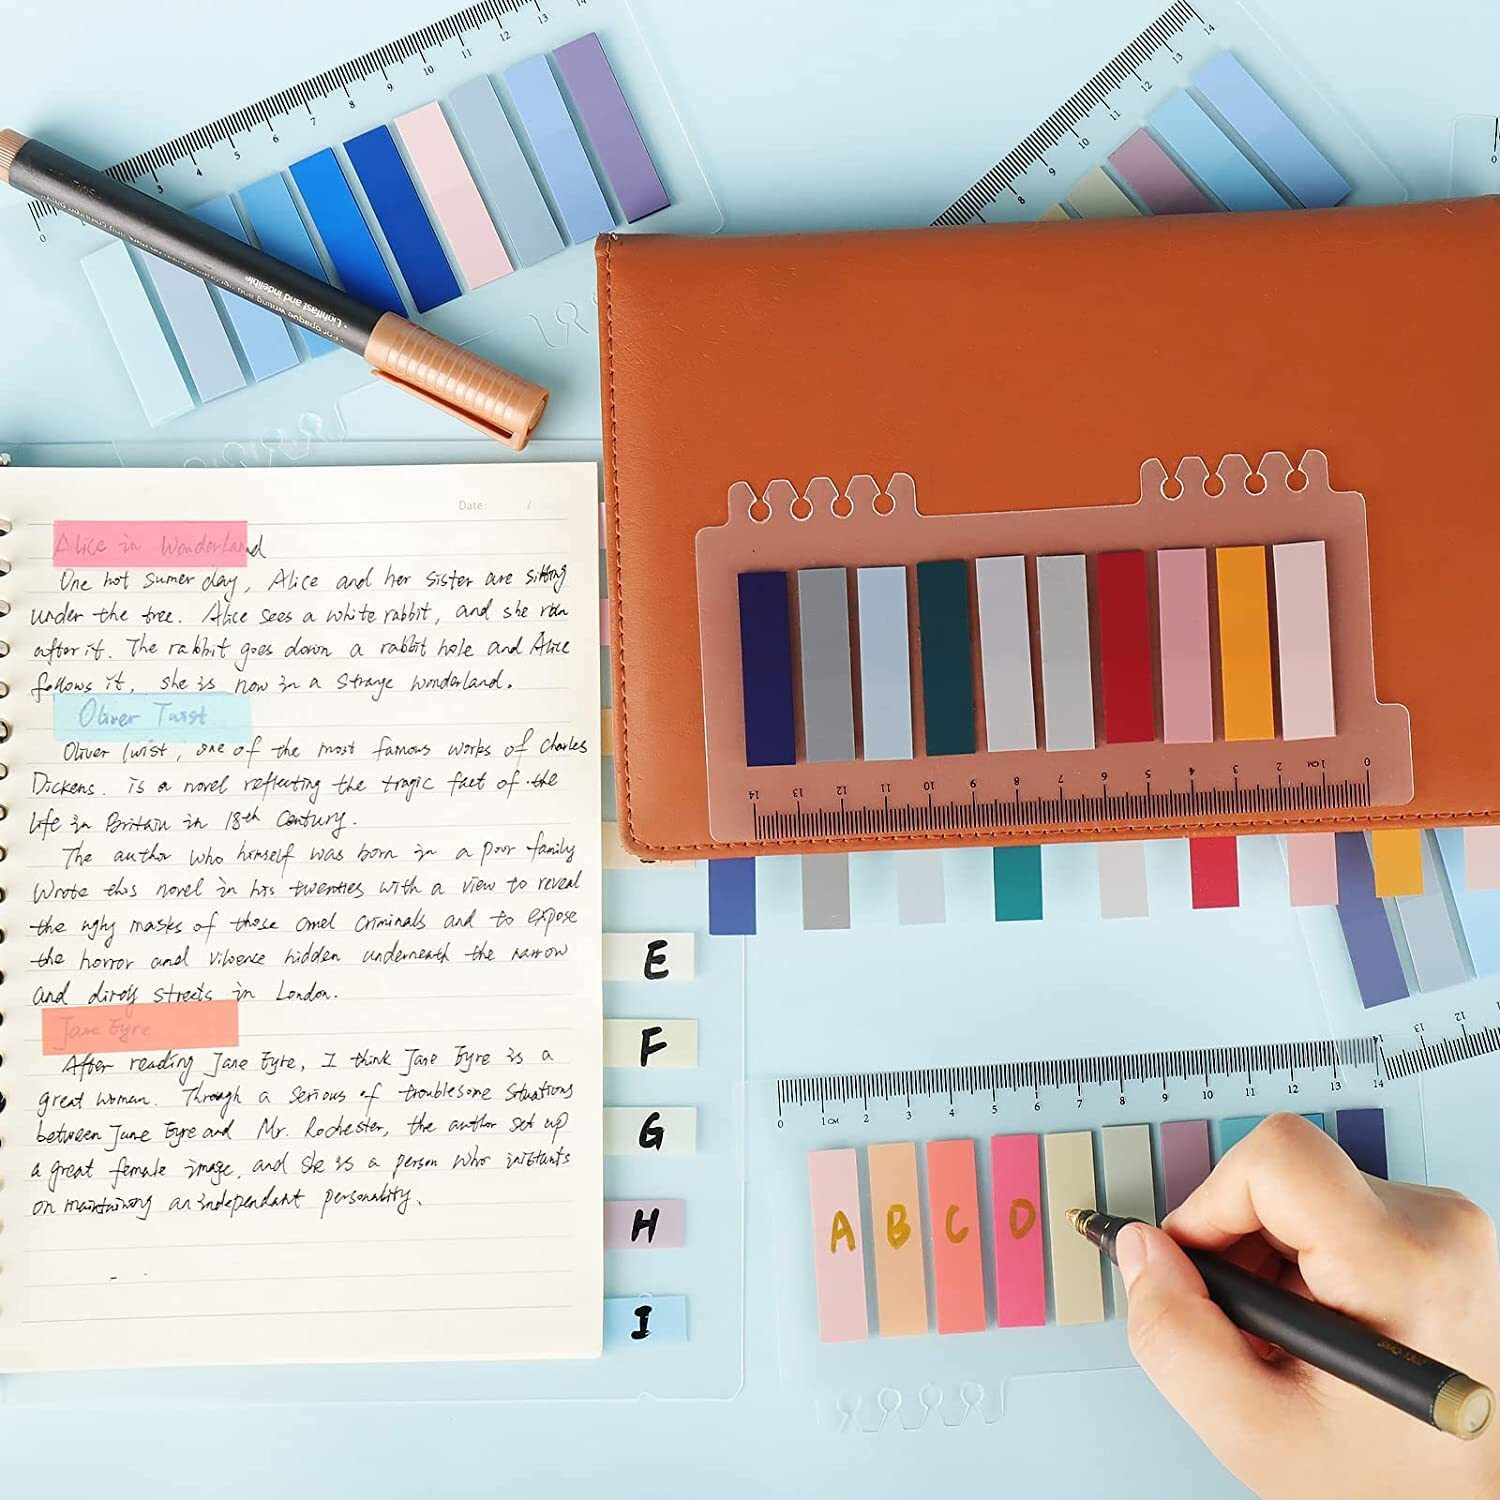 Date: /
Alice in Wonderland
One hot sumer day, Alice and her sister are sitting
under the tree. Alice sees a white rabbit, and she run
after it. The rabbit goes down a rabbit hole and Alice
follows it, she is now in a strange wonderland.
Oliver Twist
Oliver Twist, one of the most famous works of Charles
Dickens. is a novel reflecting the tragic fact of the
life in Britain in 18th Century.
The author who himself was born in a poor family
Wrote this novel in his twenties with a view to reveal
the ugly masks of those cruel criminals and to expose
the horror and violence hidden underneath the narrow
and dirty streets in London.
Jane Eyre
After reading Jane Eyre, I think Jane Eyre is a
great woman. Through a serious of troublesome situations
between Jane Eyre and Mr. Rochester, the author set up
a great female image, and she is a person who
on maintaining an independant personality.
E
F
G
H
I
• For opaque writing and
• Lightfast and indelible
0 3 4 5 6 7 8 9 10 11 12 13 14
8 9 10 11 12 13 14
14 13 12 11 10 9 8 7 6 5 4 3 2 1CM 0
0 1CM 2 3 4 5 6 7 8 9 10 11 12 13 14
13 12
A B C D